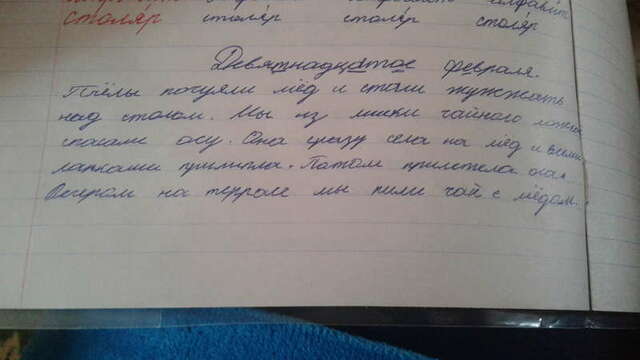 столя́р столя́р столя́р столя́р
Девятнадцатое февраля.
Пчёлы почуяли мёд и стали жужжать
над столом. Мы из миски чайного ложкой
спасали осу. Она сразу села на мёд и всеми
лапками прилипла. Потом прилетела оса.
Вечером на террасе мы пили чай с мёдом.